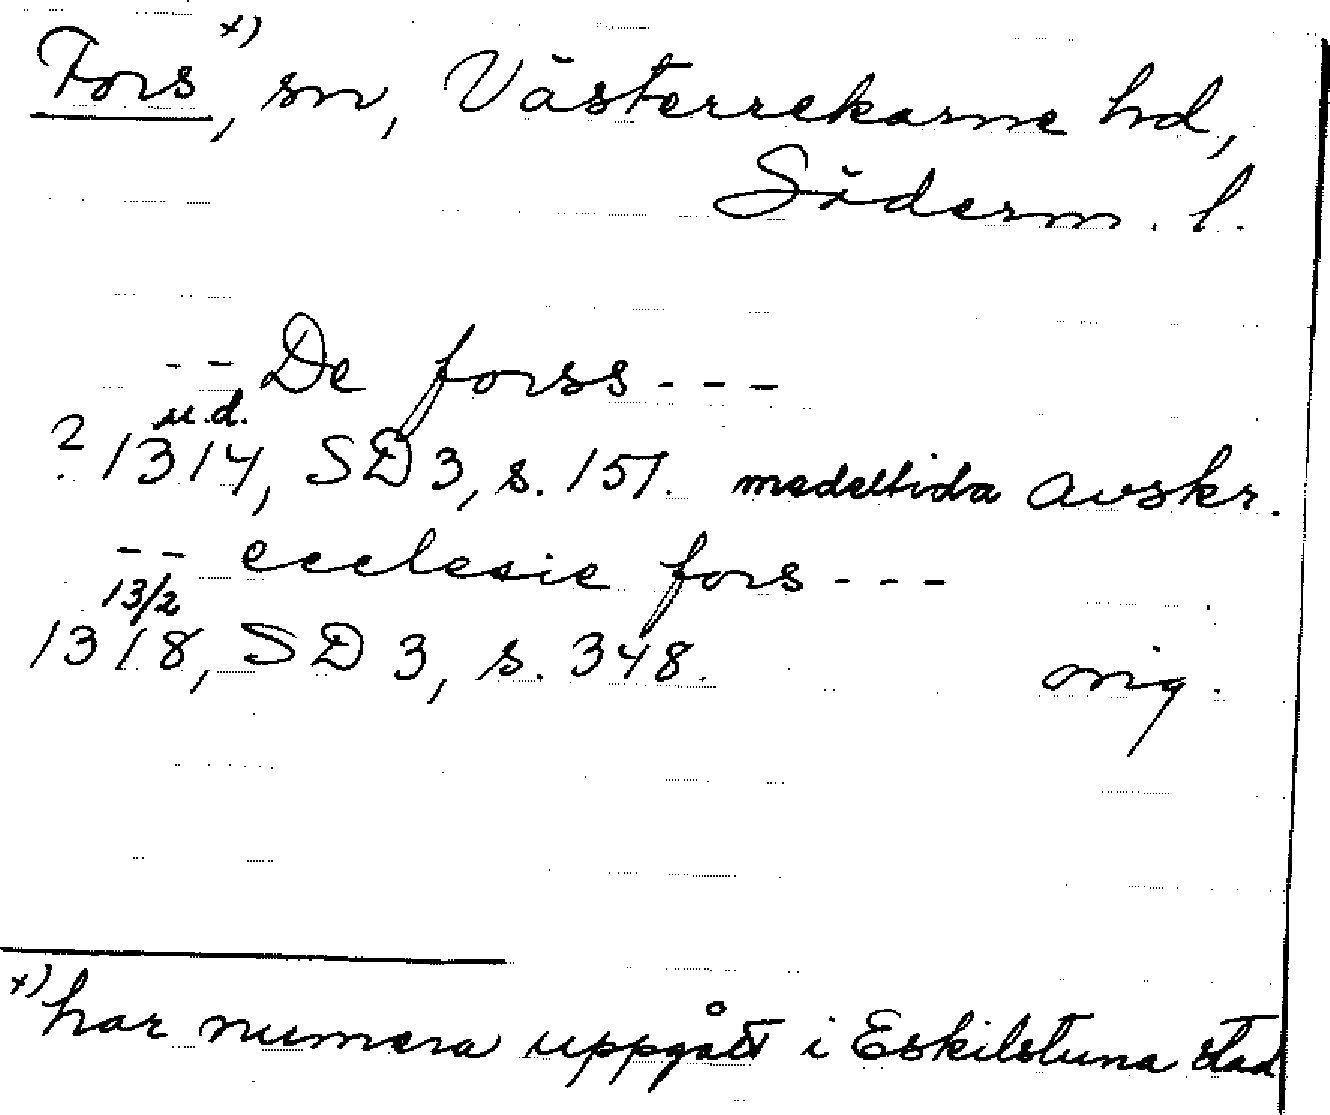 Fors x), sn, Västerrekarne hd,
Söderm. l.
-- De forss ---
u.d.
? 1314, SD 3, s. 151. medeltida avskr.
-- ecclesie fors ---
13/2
1318, SD 3, s. 348. orig.
x) har numera uppgått i Eskilstuna stad